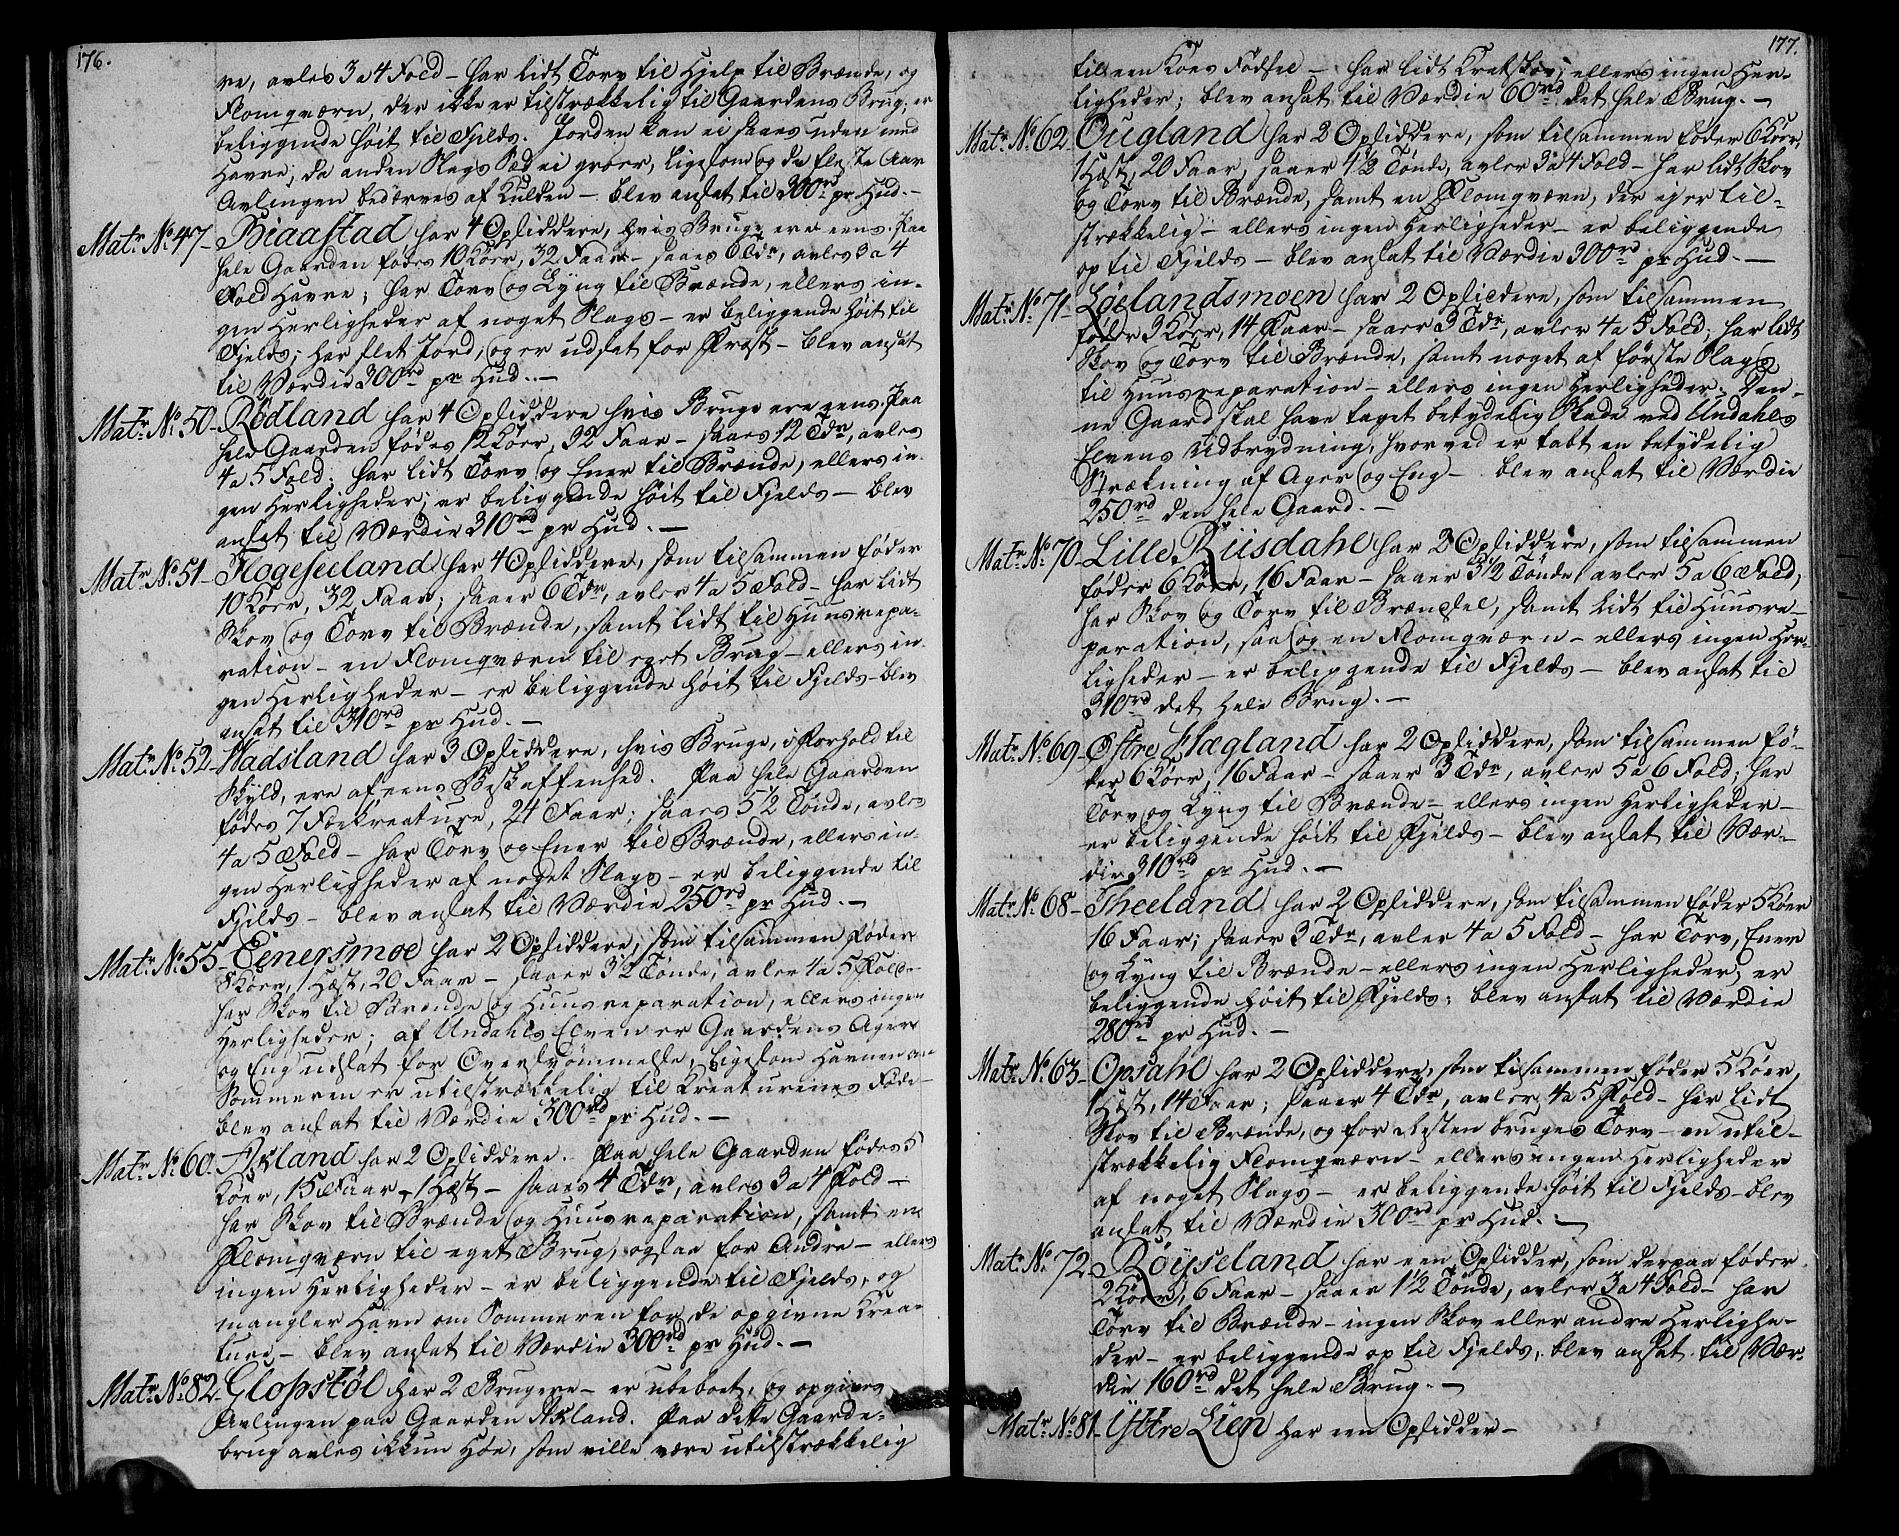 176.
re, avles 3 a 4 Fold – har lidt Torv til Hjelp til Brænde, og
Flomqværn, der ikke er tilstrækkelig til Gaardens Brug; er
beliggende höit til Fjelds. Jorden kan ei saaes uden med
Havre, da anden Slags Sæd ei groer, ligesom og de fleste Aar
Avlingen bedærves af Kulden – blev ansat til 300rd pr Hud. –
Matr. No. 47 – Biaastad har 4 Opsiddere, hvis Bruge ere eens. Paa
hele Gaarden födes 10 Köer, 32 Faar – saaes 6 Tdr, avles 3 a 4
Fold Havre; har Torv og Lyng til Brænde, ellers in-
gen Herligheder af noget Slags – er beliggende höit til
Fjelds; har flet Jord, og er udsat for Frost – blev ansat
til Værdie 300rd pr Hud. –
Matr. No. 50 – Rödland har 4 Opsiddere hvis Bruge ere eens. Paa
hele Gaarden födes 12 Köer, 32 Faar – saaes 12 Tdr, avles
4 a 5 Fold; har lidt Torv og Ener til Brænde, ellers in-
gen Herligheder; er beliggende höit til Fjelds – blev
ansat til Værdie 310rd pr Hud. –
Matr. No. 51 – Flogeseeland har 4 Opsiddere, som tilsammen föder
10 Köer, 32 Faar; saaer 6 Tdr, avler 4 a 5 Fold – har lidt
Skov og Torv til Brænde, samt lidt til Huusrepa-
ration – en Flomqværn til eget Brug – ellers in-
gen Herligheder – er beliggende höit til Fjelds – blev
ansat til 310rd pr Hud. –
Matr. No. 52 – Hadsland har 3 Opsiddere, hvis Bruge, i Forhold til
Skyld, ere af eens Beskaffenhed. Paa hele Gaarden
födes 7 Fækreature, 24 Faar; saaes 5 1/2 Tönde, avles
4 a 5 Fold – har Torv og Ener til Brænde, ellers in-
gen Herligheder af noget Slags – er beliggende til
Fjelds – blev ansat til Værdie 250rd pr Hud. –
Matr. No. 55 – Eenersmoe har 2 Opsiddere, som tilsammen föder
8 Köer, 1 Hæst, 20 Faar – saaer 3 1/2 Tönde, avler 4 a 5 Fold –
har Skov til Brænde og Huusreparation, ellers ingen
Herligheder; af Undahls Elven er Gaardens Ager
og Eng udsat for Oversvömmelse, ligesom Havnen om
Sommeren er utilstrækkelig til Kreaturenes Föde –
blev ansat til Værdie 300rd pr Hud. –
Matr. No. 60. Askland har 2 Opsiddere. Paa hele Gaarden födes 5
Köer, 15 Faar, 1 Hæst – saaes 4 Tdr, avles 3 a 4 Fold –
har Skov til Brænde og Huusreparation, samt en
Flomqværn til eget Brug, ogsaa for Andre – ellers
ingen Herligheder – er beliggende til Fjelds, og
mangler Havn om Sommeren for de opgivne Krea-
ture – blev ansat til Værdie 300rd pr Hud. –
Matr. No. 82. Glopstöl har 2 Brugere – er ubeboet, og opgives
Avlingen paa Gaarden Askland. Paa dette Gaarde-
brug avles ikkun Höe, som ville være utilstrækkelig
177.
til een Koes Födsel – har lidt Kratskov, ellers ingen Her-
ligheder; blev ansat til Værdie 60rd det hele Brug. –
Matr. No. 62. Ougland har 2 Opsiddere, som tilsammen föder 6 Köer,
1 Hæst, 20 Faar, saaer 4 1/2 Tönde, avler 3 a 4 Fold – har lidt Skov
og Torv til Brænde, samt en Flomqværn, der ej er til-
strækkelig – ellers ingen Herligheder – er beliggende
op til Fjelds – blev ansat til Værdie 300rd pr Hud. –
Matr. No. 71 – Löelandsmoen har 2 Opsiddere, som tilsammen
föder 3 Köer, 14 Faar – saaer 3 Tdr, avler 4 a 5 Fold; har lidt
Skov og Torv til Brænde, samt noget af förste Slags
til Huusreparation – ellers ingen Herligheder. Den-
ne Gaard skal have taget betydelig Skade ved Undahls
Elvens Udbrydning, hvorved er tabt en betydelig
Strækning af Ager og Eng – blev ansat til Værdie
250rd den hele Gaard. –
Matr. No. 70 – Lille Riisdahl har 2 Opsiddere, som tilsammen
föder 6 Köer, 16 Faar – saaer 3 1/2 Tönde, avler 5 a 6 Fold;
har Skov og Torv til Brændsel, samt lidt til Huusre-
paration, saa og en Flomqværn – ellers ingen Her-
ligheder – er beliggende til Fjelds – blev ansat til
310rd det hele Brug. –
Matr. No. 69 – Östre Hægland har 2 Opsiddere, som tilsammen fö-
der 6 Köer, 16 Faar – saaer 3 Tdr, avler 5 a 6 Fold; har
Torv og Lyng til Brænde – ellers ingen Herligheder –
er beliggende höit til Fjelds – blev ansat til Vær-
die 310rd pr Hud. –
Matr. No. 68 – Theeland har 2 Opsiddere, som tilsammen föder 5 Köer
16 Faar; saaer 3 Tdr, avler 4 a 5 Fold – har Torv, Ener
og Lyng til Brænde – ellers ingen Herligheder; er
beliggende höit til Fjelds; blev ansat til Værdie
280rd pr Hud. –
Matr. No. 63 – Opsahl har 2 Opsiddere, som tilsammen föder 5 Köer,
1 Hæst, 14 Faar; saaer 4 Tdr, avler 4 a 5 Fold – har lidt
Skov til Brænde, og for Resten bruges Torv – en util-
strækkelig Flomqværn – ellers ingen Herligheder
af noget Slags – er beliggende höit til Fjelds – blev
ansat til Værdie 300rd pr Hud. –
Matr. No. 72 – Röyseland har een Opsidder, som derpaa föder
2 Köer, 6 Faar – saaer 1 1/2 Tönde, avler 3 a 4 Fold – har
Torv til Brænde – ingen Skov eller andre Herlighe-
der – er beliggende op til Fjelds, blev ansat til Vær-
die 160rd det hele Brug. –
Matr. No. 81 – Yttre Lien har een Opsidder –